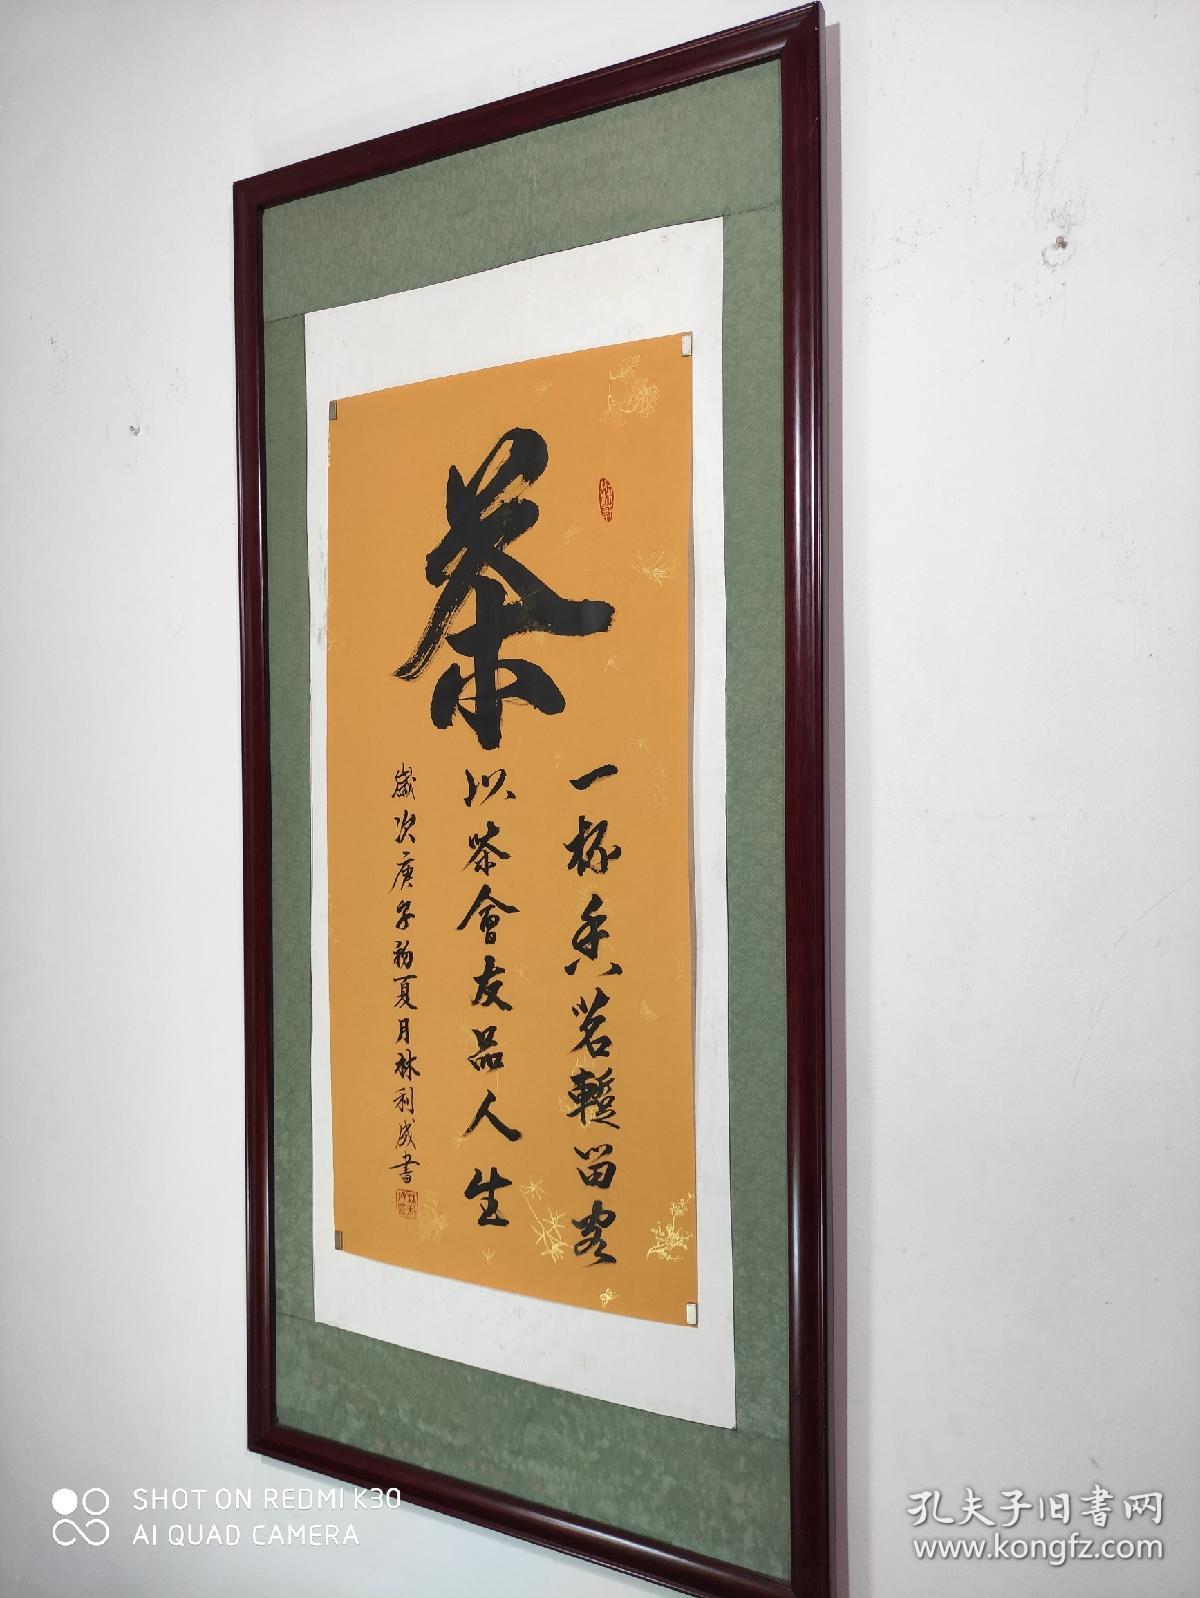 茶
一杯香茗暫留客
以茶會友品人生
歲次庚子初夏月林利成書
SHOT ON REDMI K30
AI QUAD CAMERA
孔夫子旧书网
www.kongfz.com